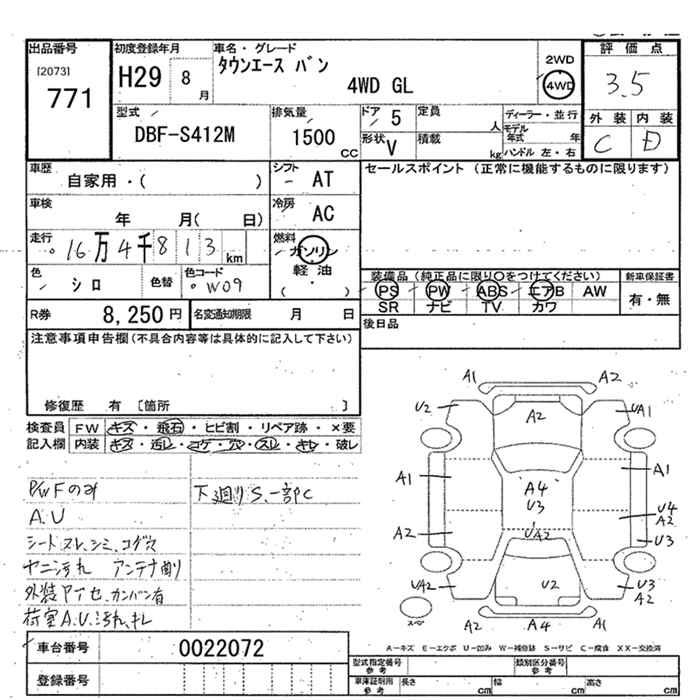 出品番号
[2073]
771
初度登録年月
H29 8 月
車名・グレード
タウンエース バン
4WD GL
2WD
4WD
評価点
3.5
外装 内装
C D
型式
DBF-S412M
排気量
1500 CC
ドア 5
形状 V
定員 人
積載 kg
ディーラー・並行
モデル年式 年
ハンドル 左・右
車歴
自家用・( )
シフト AT
車検
年 月( 日)
冷房 AC
走行
16万4千813km
燃料
ガソリン
軽油
( ・ )
色 シロ
色替
色コード W09
セールスポイント (正常に機能するものに限ります)
装備品 (純正品に限り〇をつけてください)
PS PW ABS エアB AW
SR ナビ TV カワ
新車保証書
有・無
後日品
R券 8,250円
名変通知期限 月 日
注意事項申告欄(不具合内容等は具体的に記入して下さい)
修復歴 有 [箇所 ]
検査員記入欄
FW キズ・飛石・ヒビ割・リペア跡・×要
内装 キズ・汚レ・コゲ・穴・スレ・キレ・破レ
P/WFのみ
A.U
シートスレ、シミ、コゲ穴
ヤニ汚れ アンテナ曲り
外装
カンバン有
荷室A.U、汚れ、キレ
下廻りS、一部C
A1 A2
U2 A2 UA1
A1 A4 A1
U3
U4
A2
A2 UA2 U3
UA2 U2 U3
A2
スペア
A2 A4 A1
A-キズ E-エクボ U-凹み W-補修跡 S-サビ C-腐食 XX-交換済
車台番号 0022072
登録番号
型式指定番号 参考
類別区分番号 参考
車庫証明用 参考
長さ cm 幅 cm 高さ cm